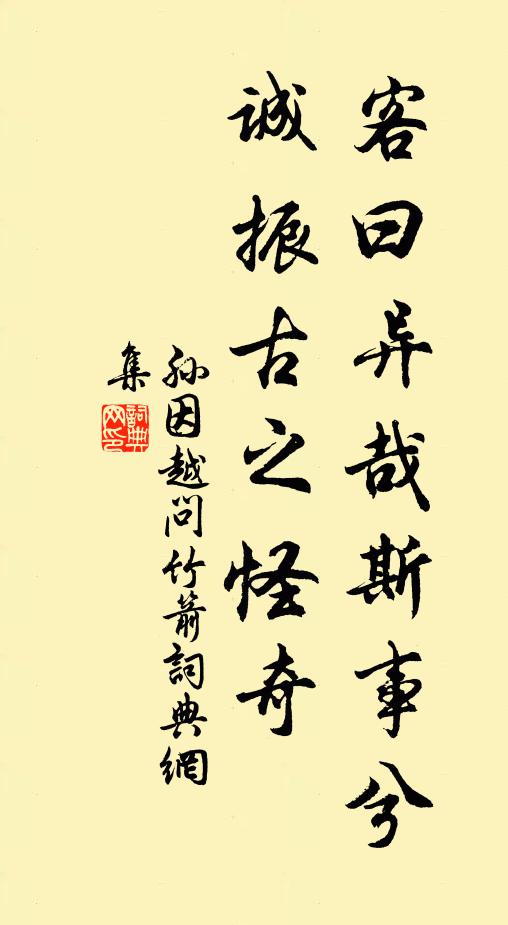 客曰异哉斯事兮
诚振古之怪奇
孙因越问竹箭詞典網
集
詞典
网印